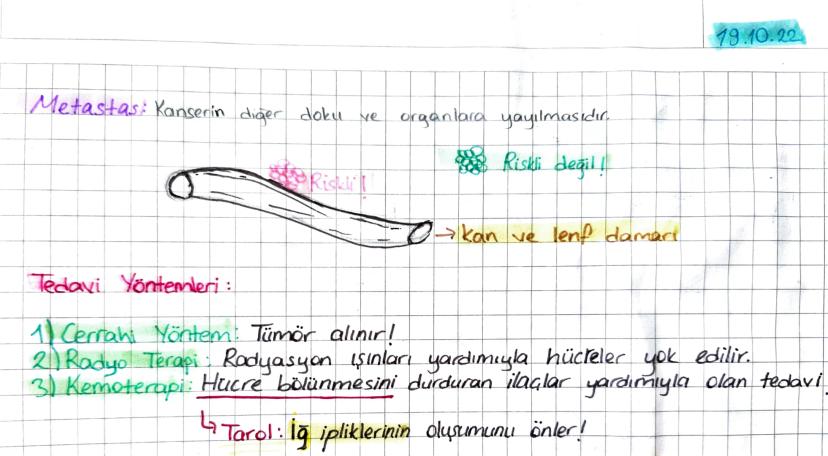 19.10.22
Metastas: Kanserin diğer doku ve organlara yayılmasıdır.
Riskli değil!
Riskli!
→ kan ve lenf damarı
Tedavi Yöntemleri:
1) Cerrahi Yöntem: Tümör alınır!
2) Radyo Terapi: Radyasyon ışınları yardımıyla hücreler yok edilir.
3) Kemoterapi: Hücre bölünmesini durduran ilaçlar yardımıyla olan tedavi.
↳ Tarol: İğ ipliklerinin oluşumunu önler!